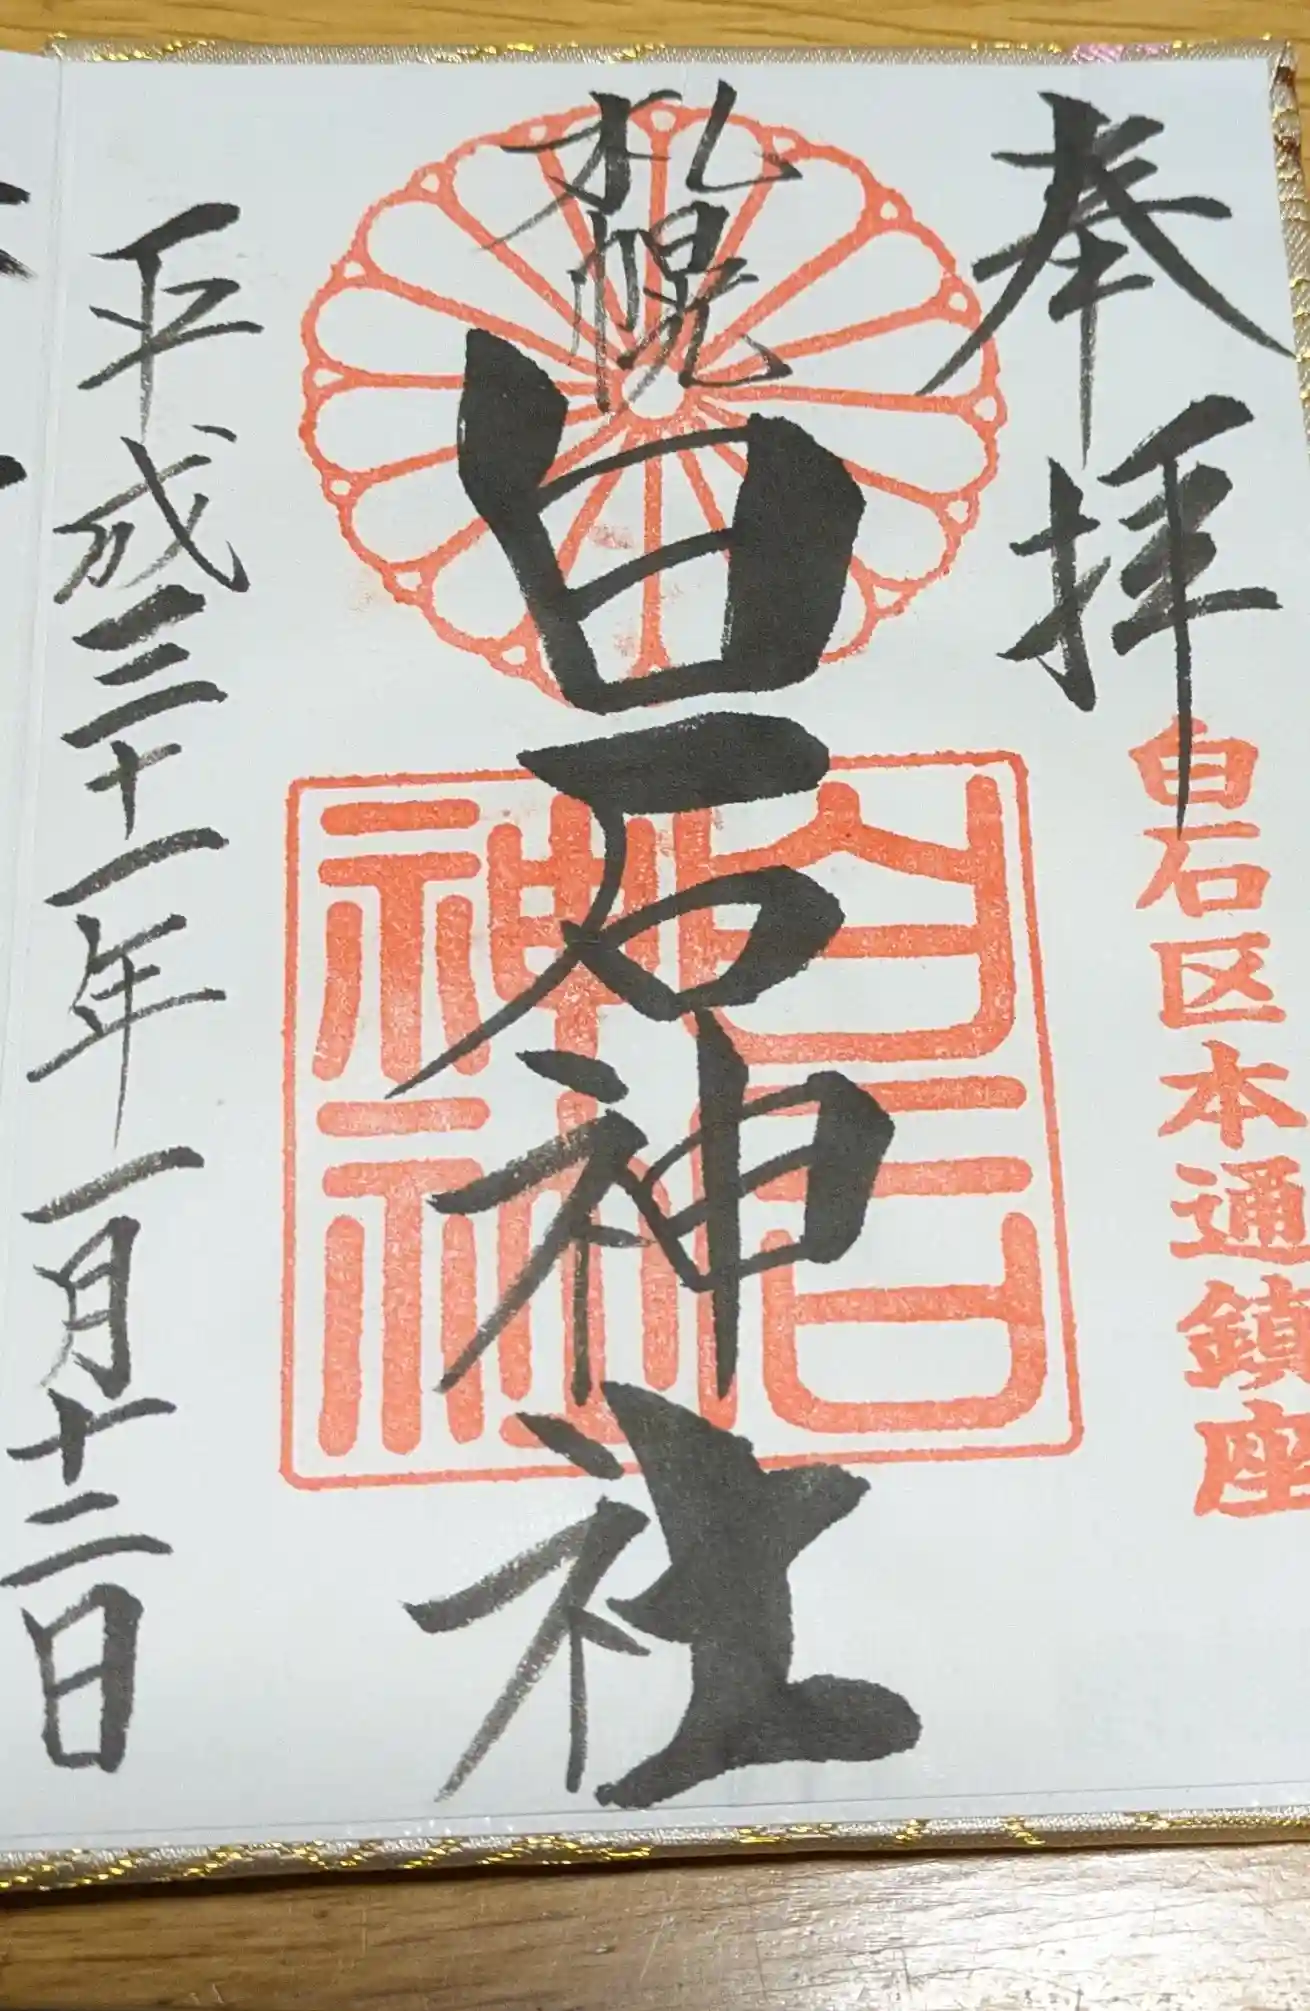 奉拝
白石区本通鎮座
札幌
白石神社
白石神社
平成三十一年一月十二日